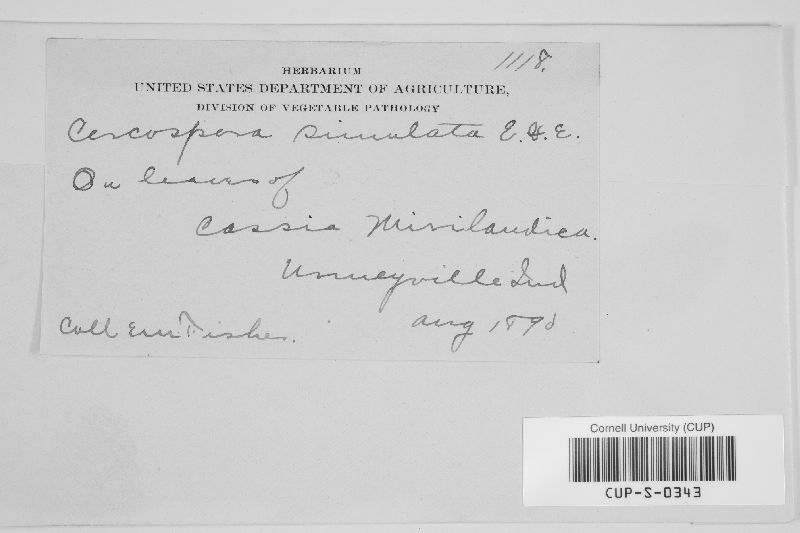 1118.
HERBARIUM
UNITED STATES DEPARTMENT OF AGRICULTURE,
DIVISION OF VEGETABLE PATHOLOGY
Cercospora simulata E. & E.
On leaves of
Cassia Mirilandica.
Urmeyville Ind
Aug 1890
Coll E.M. Fisher.
Cornell University (CUP)
CUP-S-0343